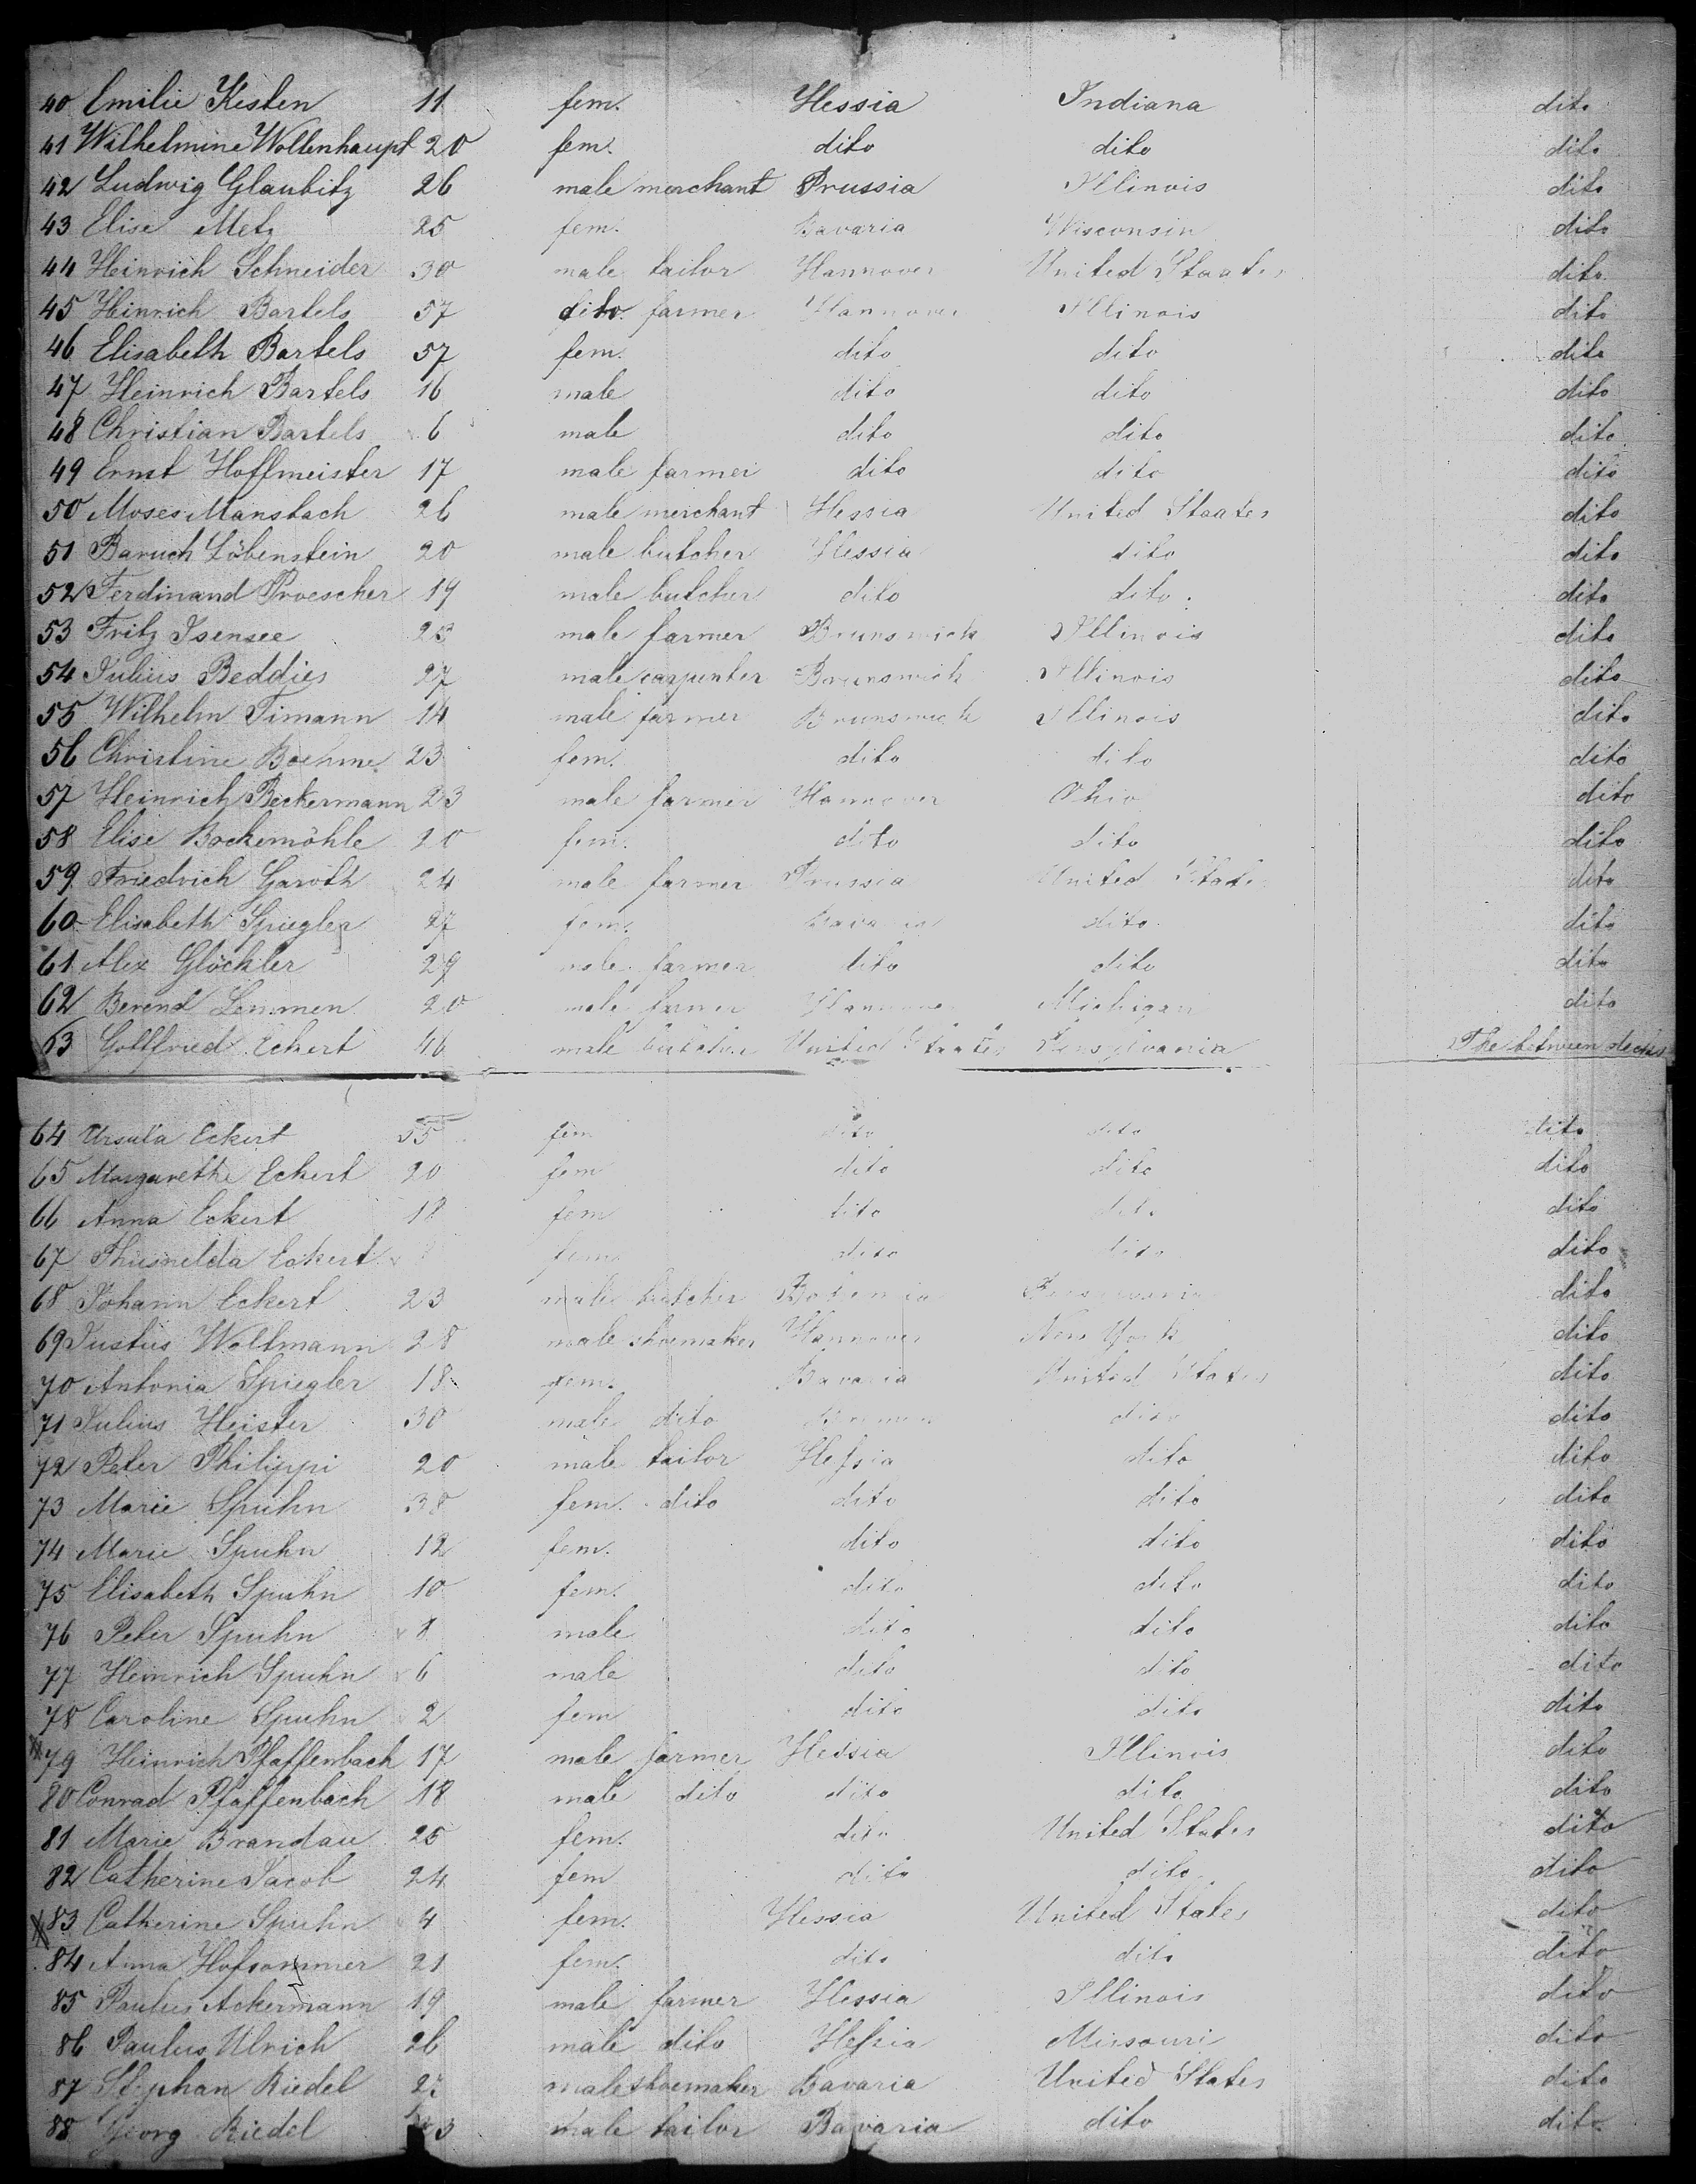 40 Emilie Kesten 11 fem. Hessia Indiana dito
41 Wilhelmine Wollenhaupt 20 fem. dito dito dito
42 Ludwig Glaubitz 26 male merchant Prussia Illinois dito
43 Elise Metz 25 fem. Bavaria Wisconsin dito
44 Heinrich Schneider 30 male tailor Hannover United Staates dito
45 Heinrich Bartels 57 dito farmer Hannover Illinois dito
46 Elisabeth Bartels 57 fem. dito dito dito
47 Heinrich Bartels 16 male dito dito dito
48 Christian Bartels 6 male dito dito dito
49 Ernst Hoffmeister 17 male farmer dito dito dito
50 Moses Mansbach 26 male merchant Hessia United Staates dito
51 Baruch Löbenstein 20 male butcher Hessia dito dito
52 Ferdinand Proescher 19 male butcher dito dito dito
53 Fritz Isensee 23 male farmer Brunswick Illinois dito
54 Julius Beddies 27 male carpenter Brunswick Illinois dito
55 Wilhelm Timann 14 male farmer Brunswick Illinois dito
56 Christine Boehme 23 fem. dito dito dito
57 Heinrich Beckermann 23 male farmer Hannover Ohio dito
58 Elise Bockemöhle 20 fem. dito dito dito
59 Friedrich Garoth 24 male farmer Prussia United States dito
60 Elisabeth Spiegler 27 fem. Bavaria dito dito
61 Alex Glöckler 29 male farmer dito dito dito
62 Berend Lemmen 20 male farmer Hannover Michigan dito
63 Gottfried Eckert 46 male butcher United Staates Pensylvania The between decks
64 Ursula Eckert 55 fem dito dito dito
65 Margarethe Eckert 20 fem dito dito dito
66 Anna Eckert 18 fem dito dito dito
67 Thusnelda Eckert fem. dito dito dito
68 Johann Eckert 23 male butcher dito
69 Justus Woltmann 28 male shoemaker Hannover New York dito
70 Antonia Spiegler 18 fem. Bavaria United States dito
71 Julius Heister 30 male dito dito dito
72 Peter Philippi 20 male tailor Hessia dito dito
73 Marie Spuhn 38 fem. dito dito dito dito
74 Marie Spuhn 12 fem. dito dito dito
75 Elisabeth Spuhn 10 fem. dito dito dito
76 Peter Spuhn 8 male dito dito dito
77 Heinrich Spuhn 6 male dito dito dito
78 Caroline Spuhn 2 fem dito dito dito
79 Heinrich Pfaffenbach 17 male farmer Hessia Illinois dito
80 Conrad Pfaffenbach 18 male dito dito dito dito
81 Marie Brandau 25 fem. dito United States dito
82 Catherine Jacob 24 fem dito dito dito
83 Catherine Spuhn 4 fem. Hessia United States dito
84 Anna Hofsommer 21 fem. dito dito dito
85 Paulus Ackermann 19 male farmer Hessia Illinois dito
86 Paulus Ulrich 26 male dito Hessia Missouri dito
87 Stephan Riedel male shoemaker Bavaria United States dito
88 Georg Riedel male tailor Bavaria dito dito